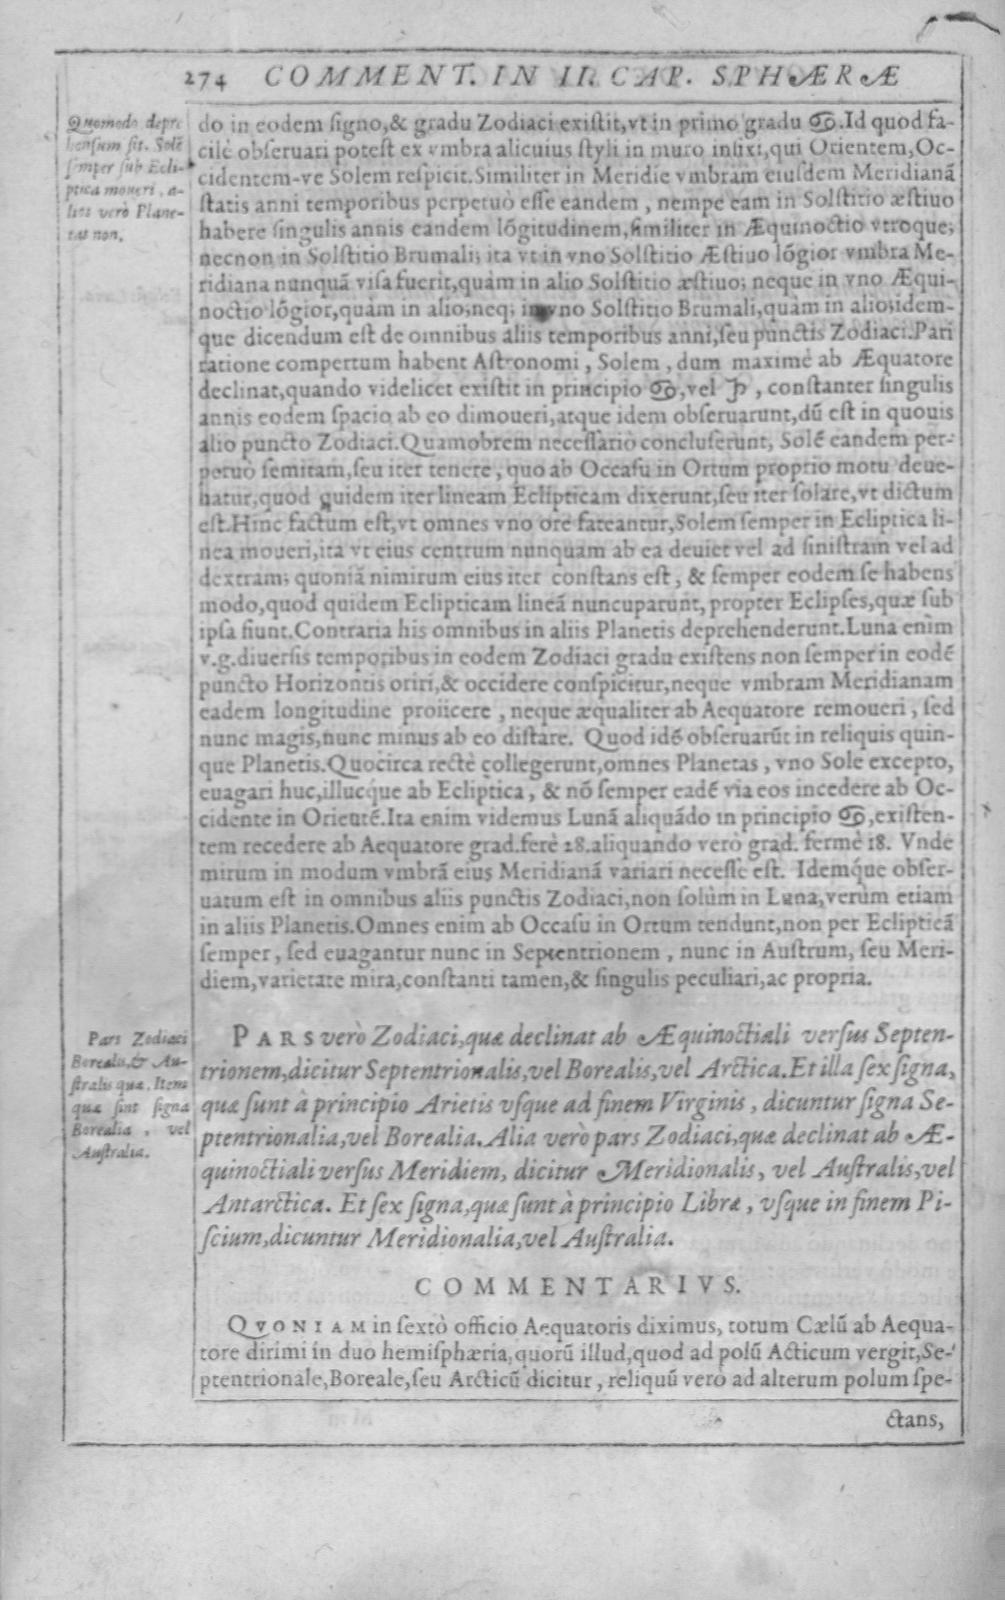 274 COMMENT. IN II. CAP. SPHÆRÆ
Quomodo depre
hensum sit, Solẽ
semper sub Ecli-
ptica moueri, a-
lios verò Plane-
tas non.
do in eodem signo,& gradu Zodiaci existit,vt in primo gradu ♋.Id quod fa-
cilè obseruari potest ex vmbra alicuius styli in muro infixi,qui Orientem,Oc-
cidentem-ve Solem respicit.Similiter in Meridie vmbram eiusdem Meridianã
statis anni temporibus perpetuò esse eandem, nempe eam in Solstitio æstiuo
habere singulis annis eandem lõgitudinem,similiter in Æquinoctio vtroque,
necnon in Solstitio Brumali; ita vt in vno Solstitio Æstiuo lõgior vmbra Me-
ridiana nunquã visa fuerit,quàm in alio Solstitio æstiuo; neque in vno Æqui-
noctio lõgior,quàm in alio;neq; in vno Solstitio Brumali,quàm in alio;idem-
que dicendum est de omnibus aliis temporibus anni,seu punctis Zodiaci.Pari
ratione compertum habent Astronomi, Solem, dum maximè ab Æquatore
declinat,quando videlicet existit in principio ♋,vel ♑, constanter singulis
annis eodem spacio ab eo dimoueri,atque idem obseruarunt,dũ est in quouis
alio puncto Zodiaci.Quamobrem necessariò concluserunt, Solẽ eandem per-
petuò semitam,seu iter tenere, quo ab Occasu in Ortum proprio motu deue-
hatur,quod quidem iter lineam Eclipticam dixerunt,seu iter solare,vt dictum
est.Hinc factum est,vt omnes vno ore fateantur,Solem semper in Ecliptica li-
nea moueri,ita vt eius centrum nunquam ab ea deuiet vel ad sinistram vel ad
dextram; quoniã nimirum eius iter constans est, & semper eodem se habens
modo,quod quidem Eclipticam lineã nuncuparunt, propter Eclipses,quæ sub
ipsa fiunt.Contraria his omnibus in aliis Planetis deprehenderunt.Luna enim
v.g.diuersis temporibus in eodem Zodiaci gradu existens non semper in eodẽ
puncto Horizontis oriri,& occidere conspicitur,neque vmbram Meridianam
eadem longitudine proiicere, neque æqualiter ab Aequatore remoueri, sed
nunc magis,nunc minus ab eo distare. Quod idẽ obseruarũt in reliquis quin-
que Planetis.Quocirca rectè collegerunt,omnes Planetas, vno Sole excepto,
euagari huc,illucq́ue ab Ecliptica, & nõ semper eadẽ via eos incedere ab Oc-
cidente in Orientẽ.Ita enim videmus Lunã aliquãdo in principio ♋,existen-
tem recedere ab Aequatore grad.ferè 28.aliquando verò grad. fermè 18. Vnde
mirum in modum vmbrã eius Meridianã variari necesse est. Idemq́ue obser-
uatum est in omnibus aliis punctis Zodiaci,non solùm in Luna,verùm etiam
in aliis Planetis.Omnes enim ab Occasu in Ortum tendunt,non per Eclipticã
semper, sed euagantur nunc in Septentrionem, nunc in Austrum, seu Meri-
diem,varietate mira,constanti tamen,& singulis peculiari,ac propria.
Pars Zodiaci
Borealis,& Au-
stralis quæ. Item
quæ sint signa
Borealia, vel
Australia.
PARS verò Zodiaci,quæ declinat ab Æquinoctiali versus Septen-
trionem,dicitur Septentrionalis,vel Borealis,vel Arctica.Et illa sex signa,
quæ sunt à principio Arietis vsque ad finem Virginis, dicuntur signa Se-
ptentrionalia,vel Borealia.Alia verò pars Zodiaci,quæ declinat ab Æ-
quinoctiali versus Meridiem, dicitur Meridionalis, vel Australis,vel
Antarctica. Et sex signa,quæ sunt à principio Libræ, vsque in finem Pi-
scium,dicuntur Meridionalia,vel Australia.
COMMENTARIVS.
QVONIAM in sexto officio Aequatoris diximus, totum Cælũ ab Aequa-
tore dirimi in duo hemisphæria,quorũ illud,quod ad polũ Acticum vergit,Se-
ptentrionale,Boreale,seu Arcticũ dicitur, reliquũ verò ad alterum polum spe-
ctans,